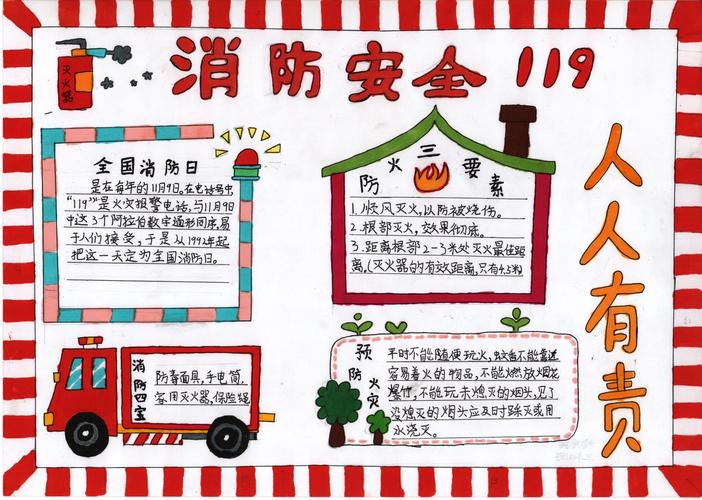 消防安全 119
灭火器
人人有责
全国消防日
是在每年的11月9日。在电话号中
“119”是火灾报警电话，与11月9日
中这3个阿拉伯数字通形同序，易
于人们接受，于是从1992年起
把这一天定为全国消防日。
防火三要素
1.顺风灭火，以防被烧伤。
2.根部灭火，效果彻底。
3.距离根部2-3米处灭火最佳距
离，(灭火器的有效距离，只有4.5米)
消防四宝
防毒面具，手电筒，
家用灭火器，保险绳
预防火灾
平时不能随便玩火，蚊香不能靠近
容易着火的物品，不能燃放烟花
爆竹，不能玩未熄灭的烟头，见了
没熄灭的烟头应及时踩灭或用
水浇灭。